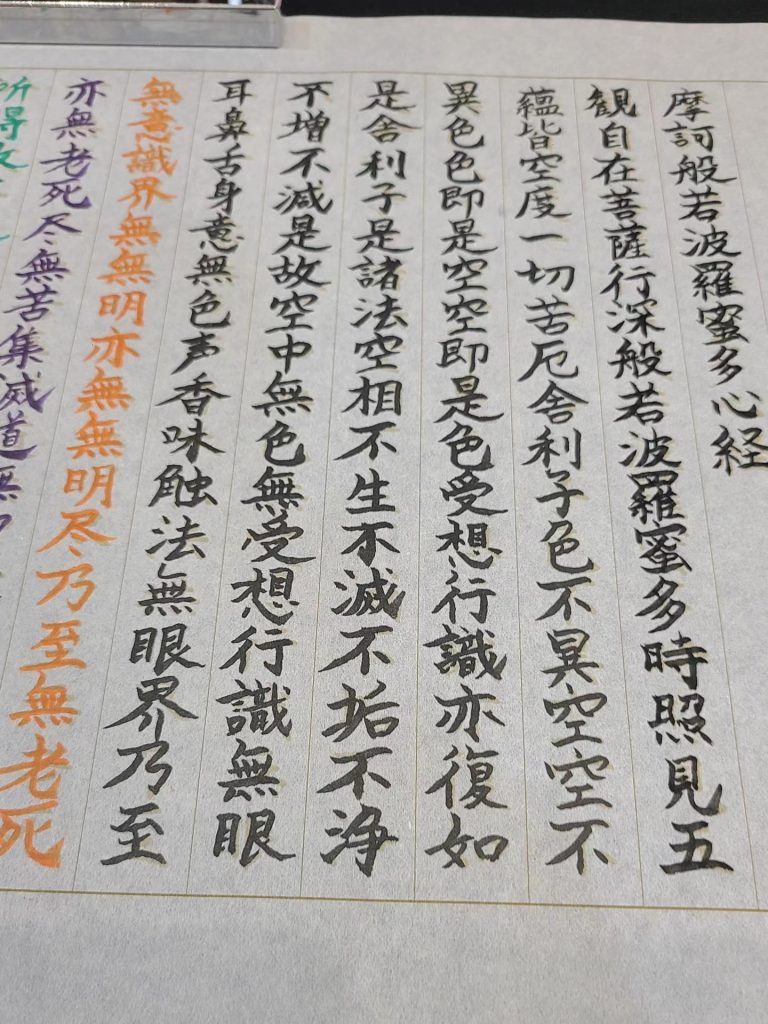 摩訶般若波羅蜜多心経
観自在菩薩行深般若波羅蜜多時照見五
蘊皆空度一切苦厄舎利子色不異空空不
異色色即是空空即是色受想行識亦復如
是舎利子是諸法空相不生不滅不垢不浄
不増不減是故空中無色無受想行識無眼
耳鼻舌身意無色声香味触法無眼界乃至
無意識界無無明亦無無明尽乃至無老死
亦無老死尽無苦集滅道無
所得故